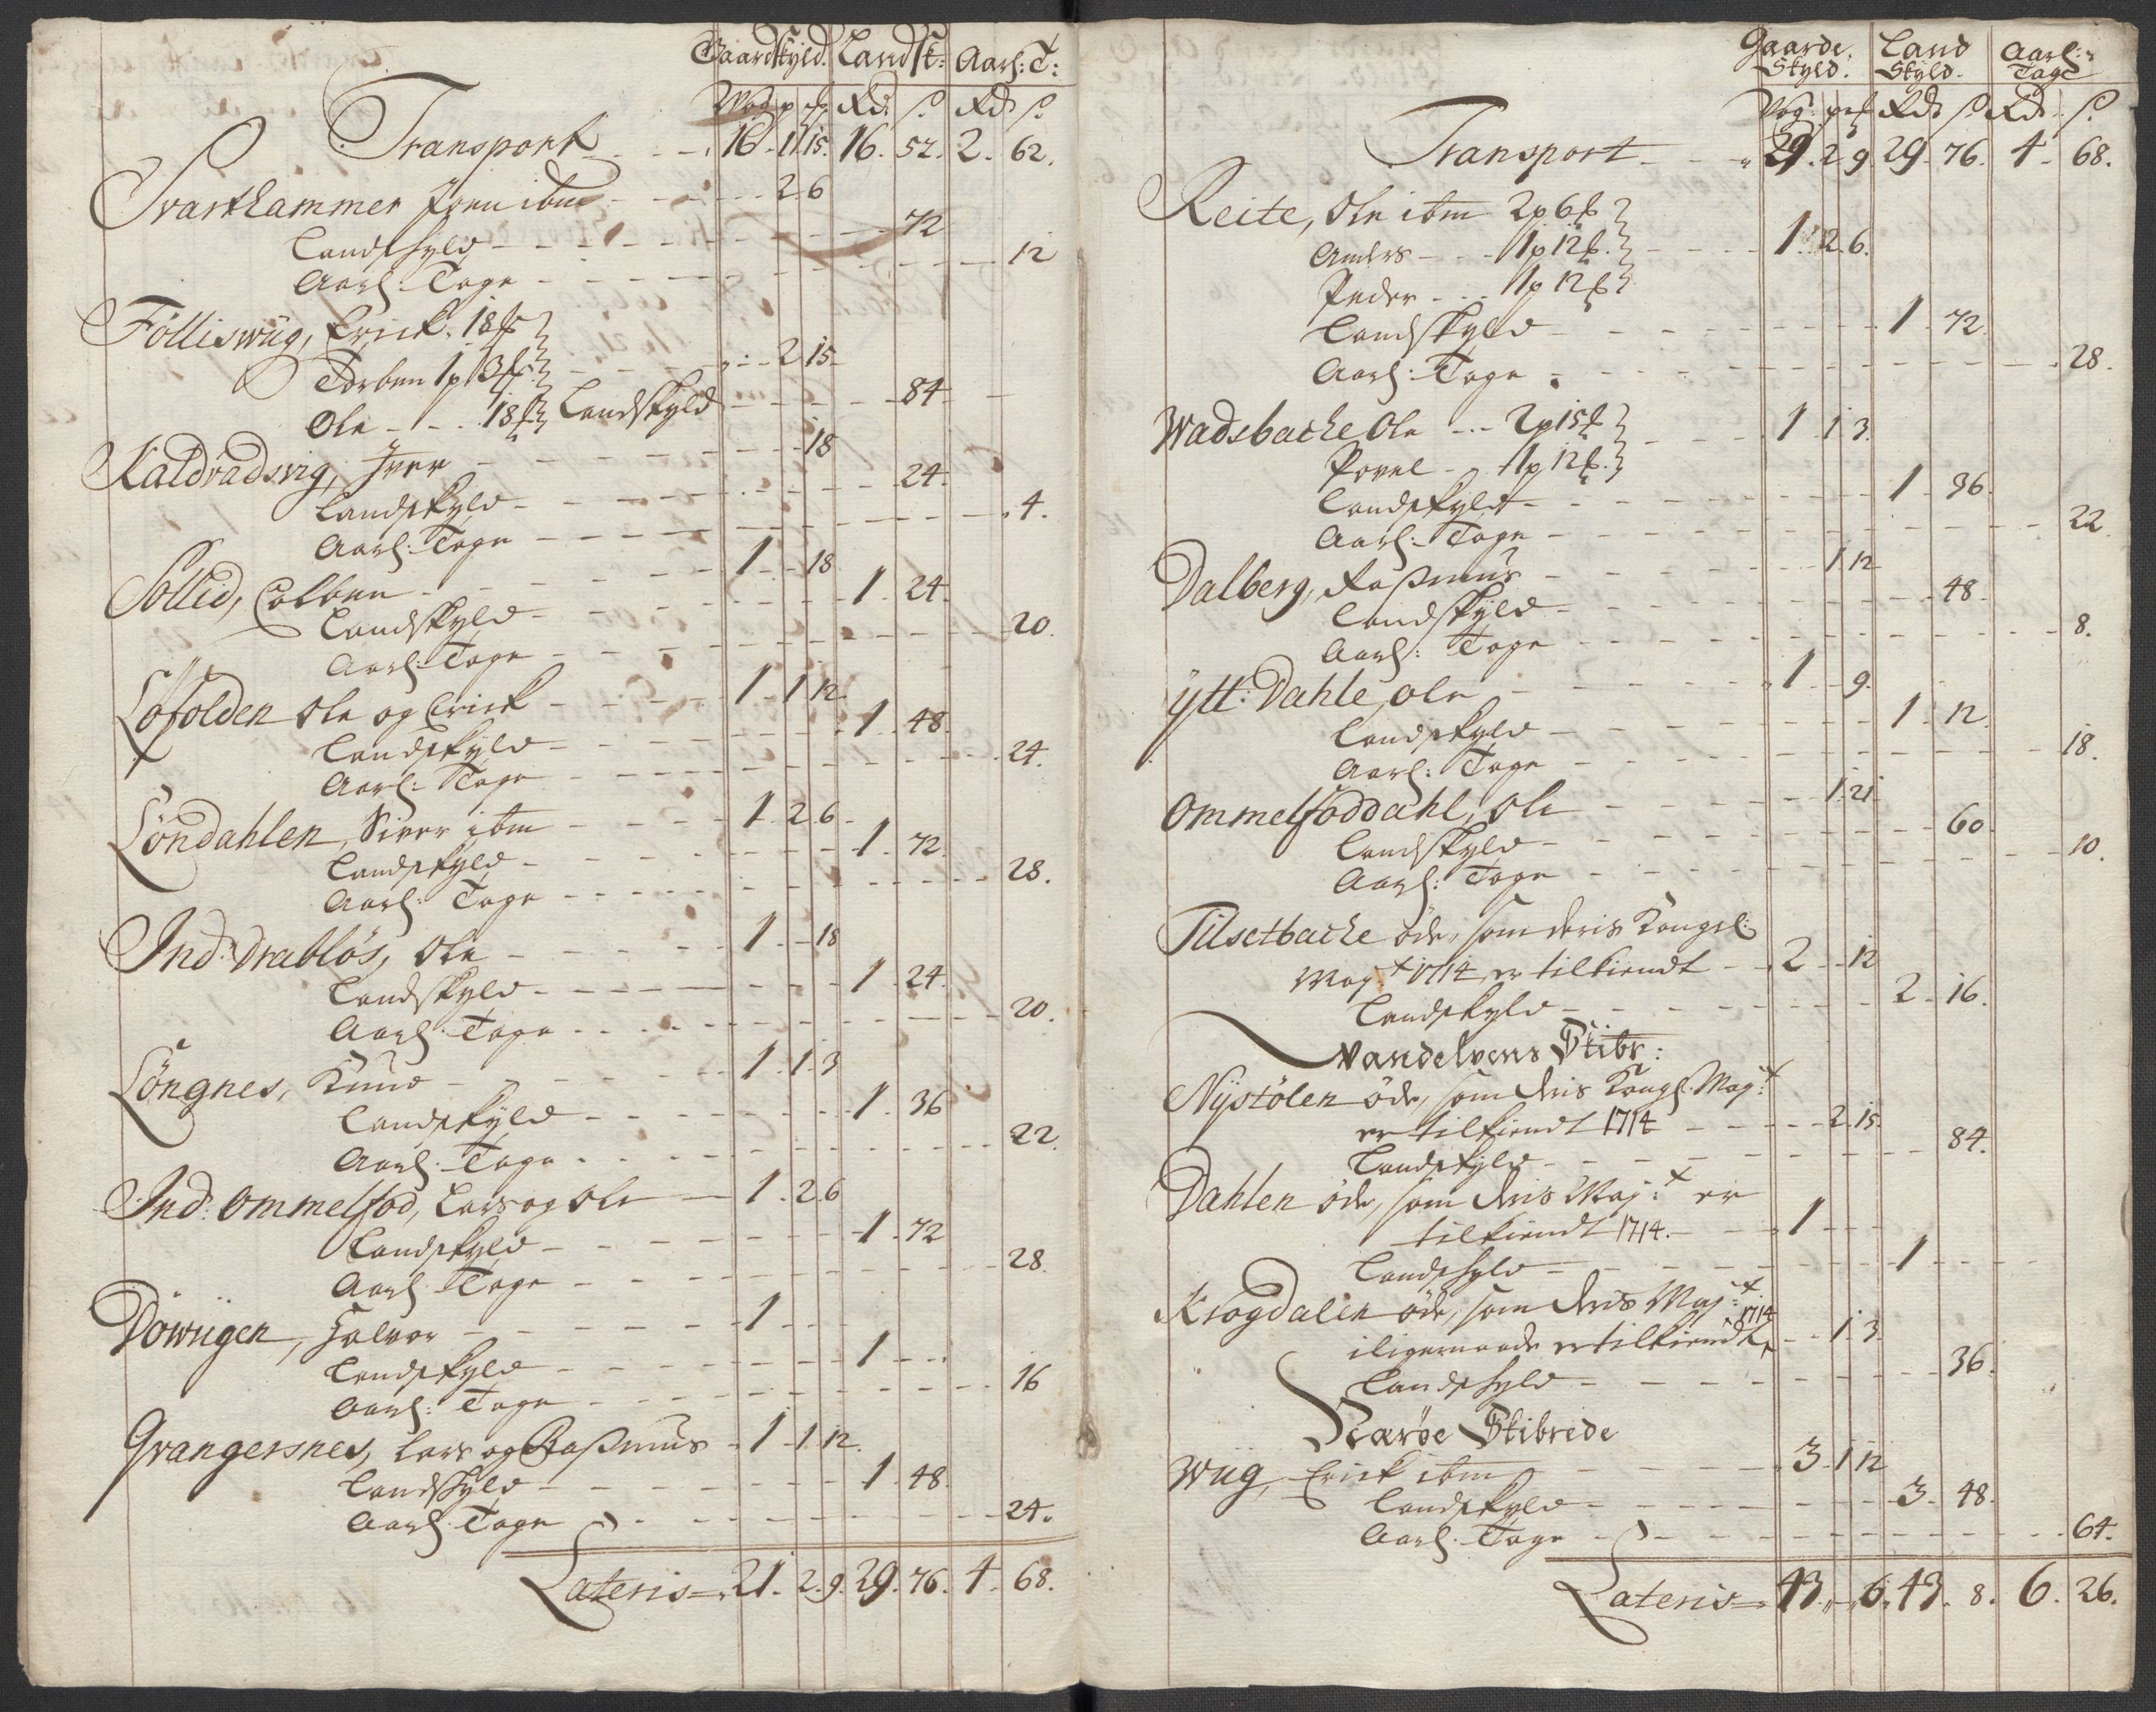 Gaardskyld. Landsk: Aarl: T:
Wog p ℔ Rd. ß Rd ß
Transport 16 1 15. 16. 52. 2. 62.
Svarthammer Joen ibm 2 6
Landskyld 72
Aarl: Tage 12
Fölliswüg, Erick 18 ℔
Torben 1 p 3 ℔ 2 15
Ole 18 ℔ Landskyld 84
Kaldvadsvig, Iver 18
Landskyld 24.
Aarl: Tage 4.
Sollid, Colben 1 18
Landskyld 1 24.
Aarl: Tage 20.
Löfolden Ole og Erick 1 1 12
Landskyld 1 48
Aarl: Tage 24.
Löndahlen, Siver ibm 1. 2 6
Landskyld 1. 72.
Aarl: Tage 28.
Ind: Drablös, Ole 1 18
Landskyld 1. 24.
Aarl: Tage 20.
Löngnes, Knud 1. 1. 3
Landskyld 1. 36
Aarl: Tage 22.
Ind: Ommelfod, Lars og Ole 1. 2 6
Landskyld 1. 72
Aarl: Tage 28.
Döwügen, Halvor 1
Landskyld 1
Aarl: Tage 16
Gvangersnes, Lars og Rasmus 1 1 12.
Landskyld 1. 48.
Aarl: Tage 24.
Lateris 21. 2. 9. 29. 76. 4. 68.
Gaarde Skyld. Land Skyld. Aarl: Tage
Wog: p ℔ Rd ß Rd ß
Transport 29. 2 9 29. 76. 4. 68.
Reite, Ole ibm 2 p 6 ℔
Anders 1 p 12 ℔ 1. 2 6.
Peder 1 p 12 ℔
Landskyld 1 72.
Aarl: Tage 28.
Wadsbache Ole 2 p 15 ℔ 1 1 3.
Povel 1 p 12 ℔
Landskyld 1. 36.
Aarl: Tage 22.
Dalberg, Rasmus 1 12
Landskyld 48.
Aarl: Tage 8.
Ytt: Dahle, Ole 1 9.
Landskyld 1. 12.
Aarl: Tage 18.
Ommelfoddahl, Ole 1. 21
Landskyld 60.
Aarl: Tage 10.
Tilsetbache öde, som deris Kongel:
Mayt 1714 er tilkiendt 2 12
Landskyld 2. 16.
Vandelvens Skibr:
Nystölen öde, som dris Kongl. May:t
er tilkiendt 1714 2 15
Landskyld 84.
Dahlen öde, som dris May:t er
tilkiendt 1714. 1
Landskyld 1
Krogdalen öde, som dris May:t 1714
iligemaade er tilkiendt 1 3
Landskyld 36.
Skibrede
Wüg, Erick ibm 3 1 12
Landskyld 3. 48.
Aarl: Tage 64.
Lateris 43. 6. 43. 8. 6. 26.